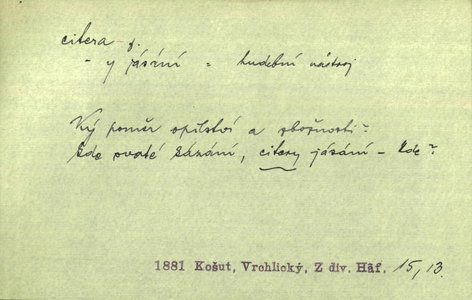 citera f.
- y jásání = hudební nástroj
Ký poměr opilství a zbožnosti?
Kde svaté kázání, citery jásání – kde?
1881 Košut, Vrchlický, Z div. Háf. 15, 13